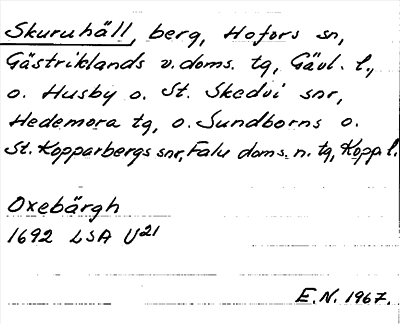 Skuruhäll, berg, Hofors sn,
Gästriklands v. doms. tg, Gävl. l.,
o. Husby o. St. Skedvi snr,
Hedemora tg, o. Sundborns o.
St. Kopparbergs snr, Falu doms. n. tg, Kopp l.
Oxebärgh
1692 LSA U21
E.N. 1967.